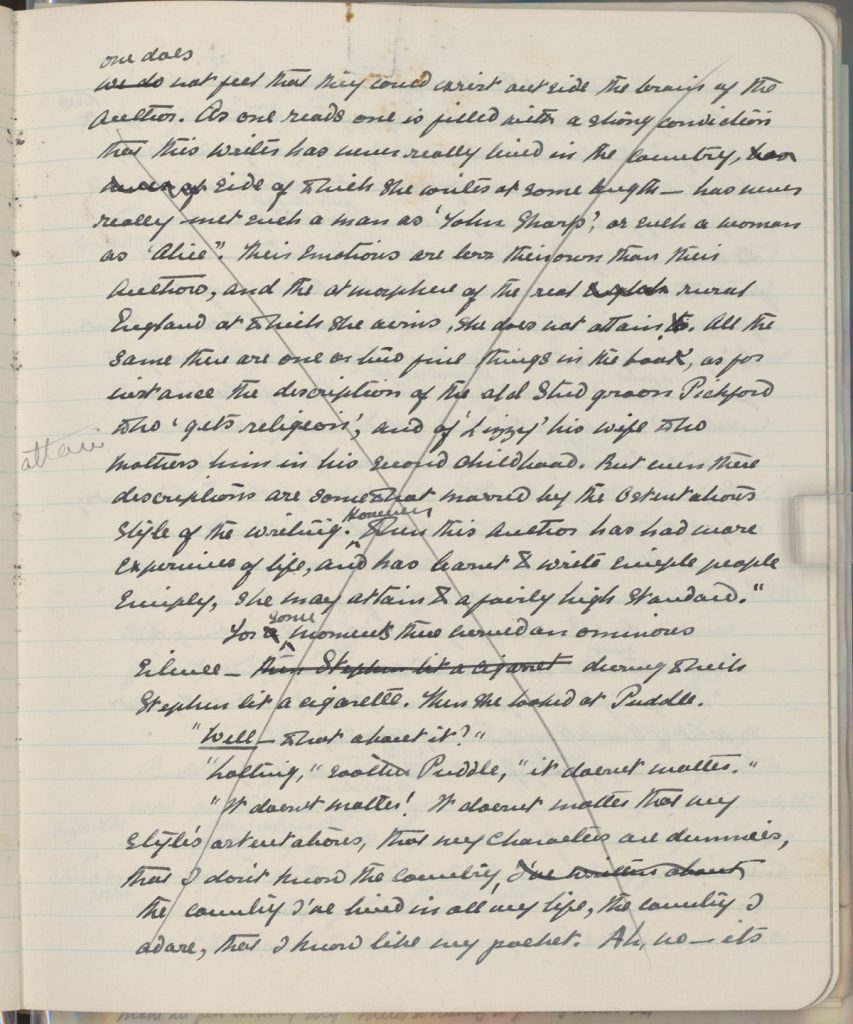 one does
we do not feel that they could exist outside the brain of the
Author. As one reads one is filled with a strong conviction
that this writer has never really lived in the country,
side of which she writes at some length — has never
really met such a man as 'John Sharp', or such a woman
as 'Alice". Their emotions are less their own than their
Authors, and the atmosphere of the real rural
England at which she aims, she does not attain to. All the
same there are one or two fine things in the book, as for
instance the description of the old Stud groom Pickford
who 'gets religion', and of 'Lizzy' his wife who
attain
mothers him in his second childhood. But even these
descriptions are somewhat marred by the Ostentatious
Style of the writing. However
When this Author has had more
experience of life, and has learnt to write simple people
simply, she may attain to a fairly high standard."
For a some moments there ensued an ominous
Silence — then Stephen lit a cigaret during which
Stephen lit a cigarette. Then she looked at Puddle.
"Well — what about it?"
"Nothing," Puddle, "it doesnt matter."
"It doesnt matter! It doesnt matter that my
Style's ostentatious, that my characters are dummies,
that I don't know the country, I've written about
the country I've lived in all my life, the country I
adore, that I know like my pocket. Ah, no — its